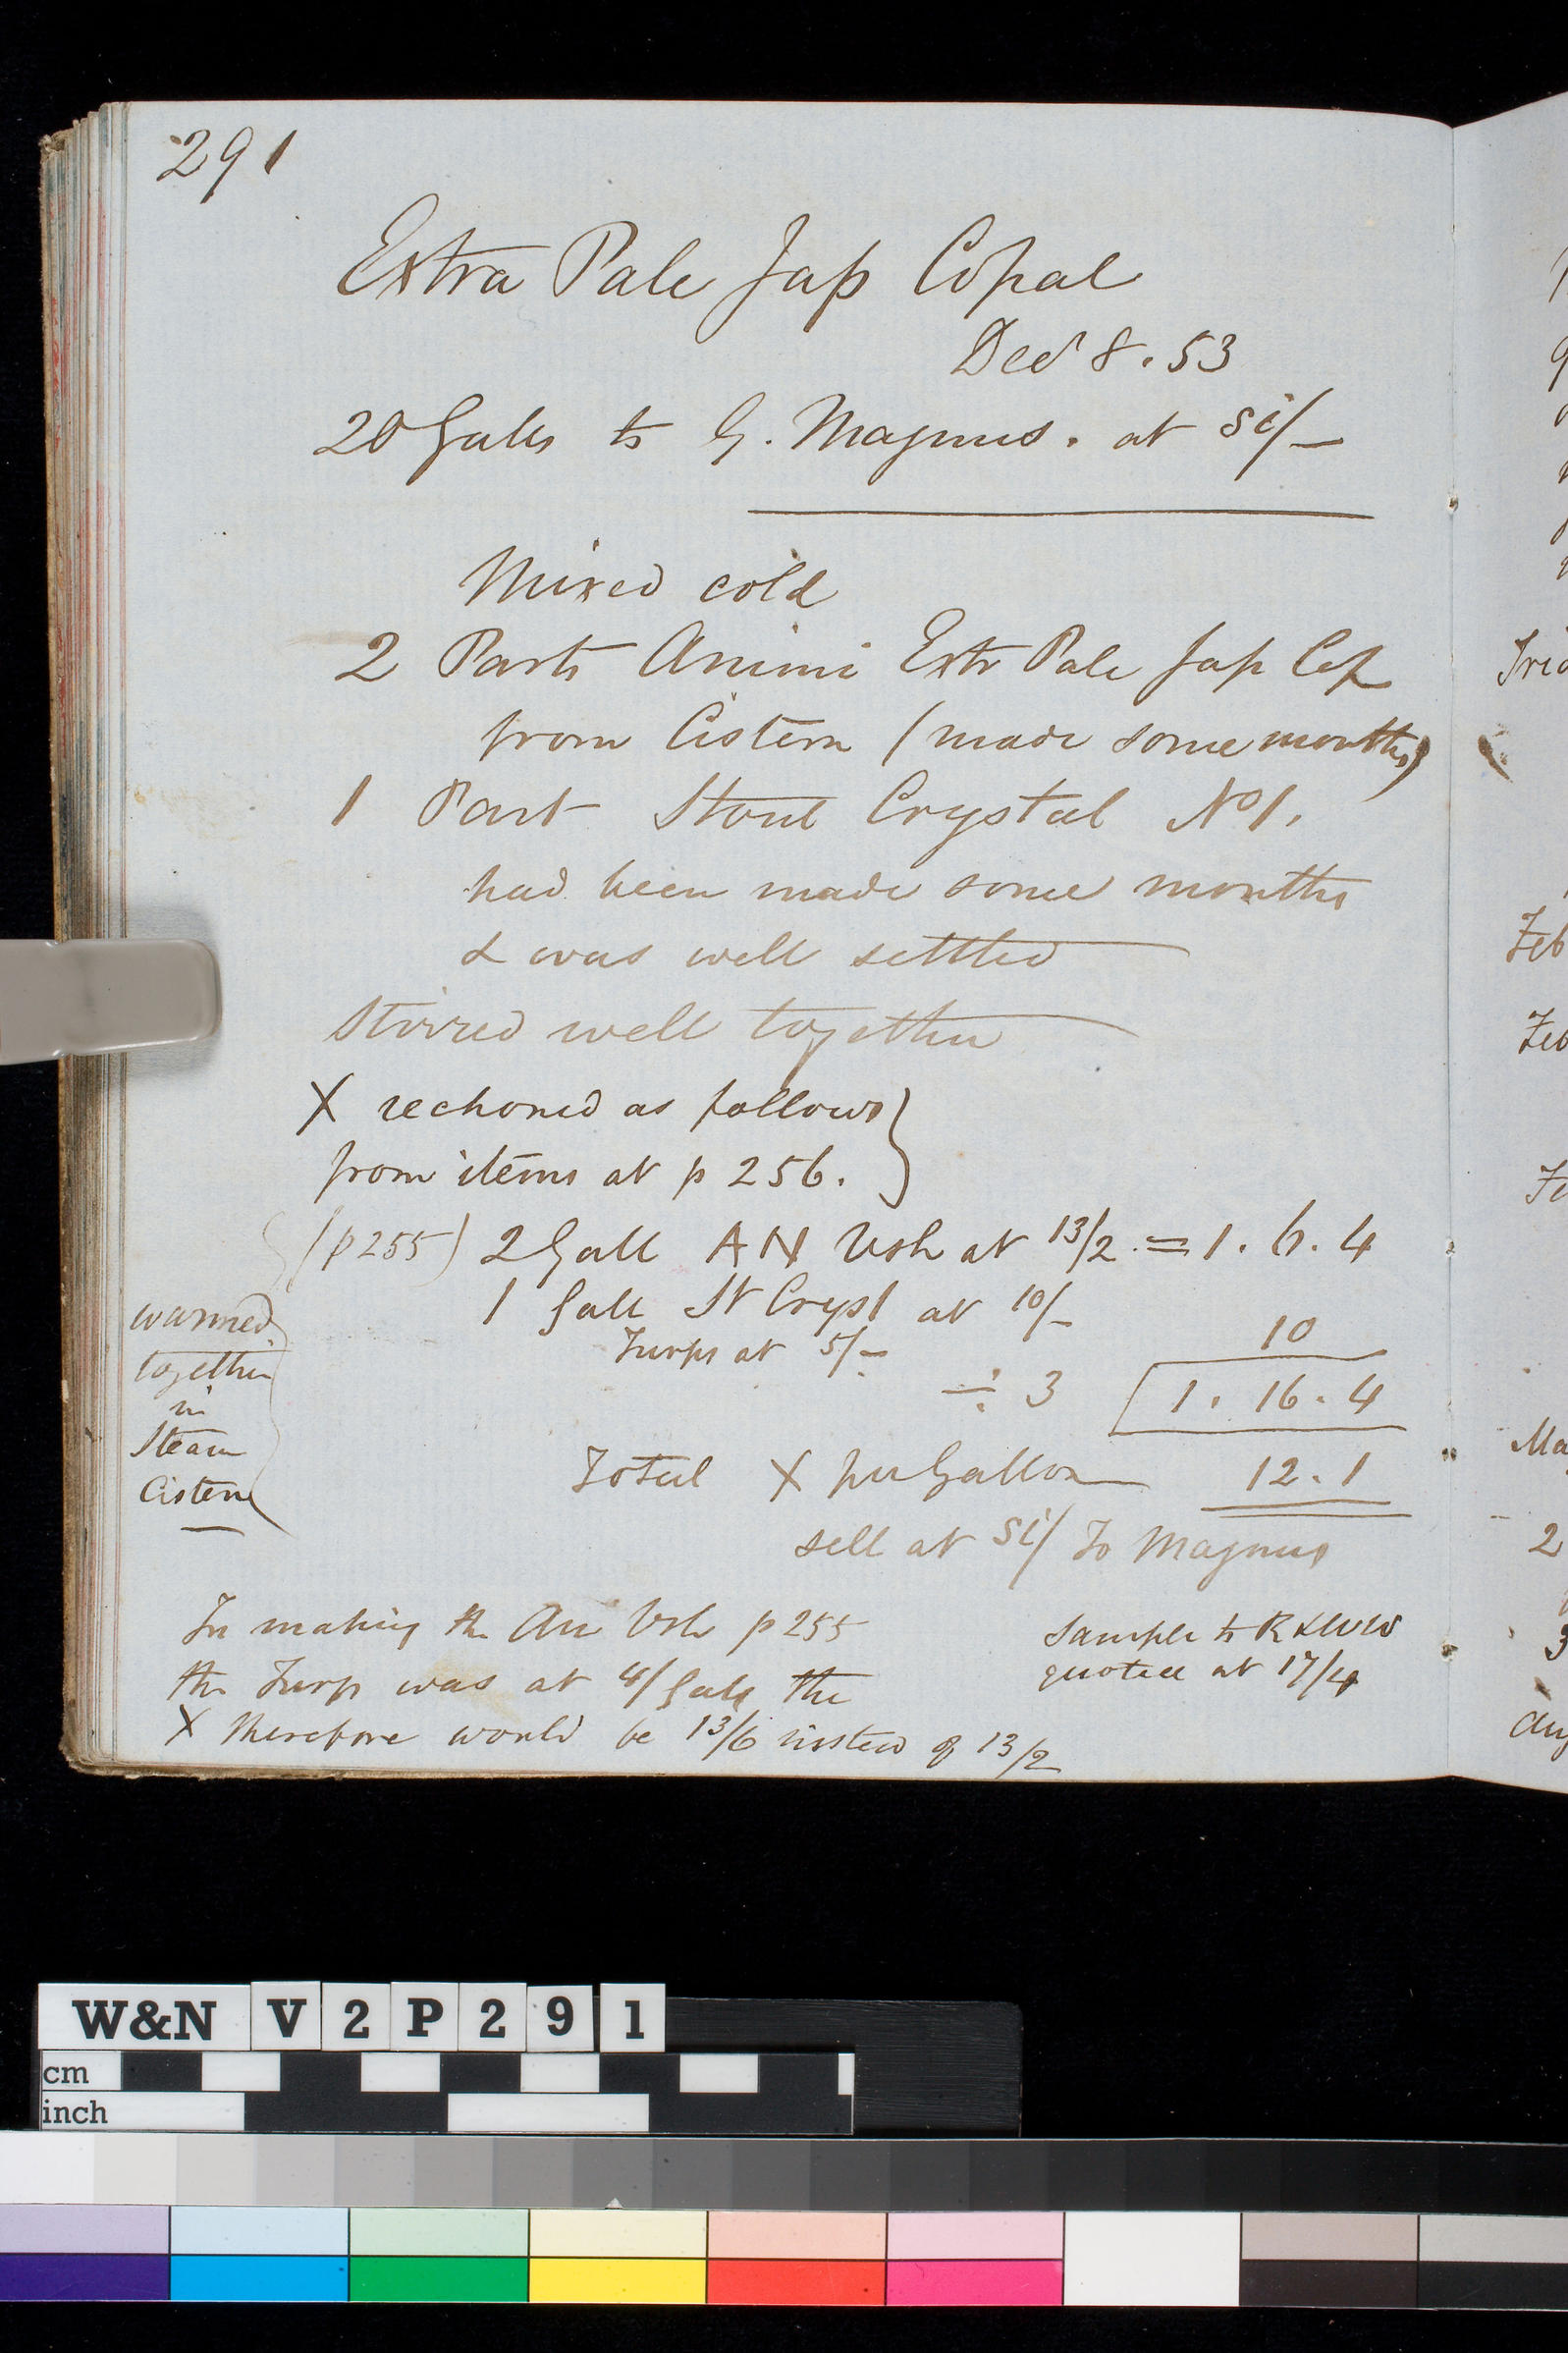 291
Extra Pale Jap Copal
Decr 8. 53
20 Galls to G. Magnus. at si/-
Mixed cold
2 Parts Animi Extr Pale Jap Cop
from Cistern (made some months)
1 Part Stout Crystal No 1.
had been made some months
& was well settled
Stirred well together
X reckoned as follows
from items at p 256.
(p255) 2 Gall AN Vsh at 13/2 = 1. 6. 4
1 Gall St Cryst at 10/-
10
Turps at 5/-
÷ 3 1. 16. 4
Total X per Gallon 12. 1
sell at si/ To Magnus
warmed
together
in
Steam
Cistern
In making the Ani Vsh p 255
the Turp was at 4/ Gall the
X therefore would be 13/6 instead of 13/2
Sample to R
quoted at 17/4
Feb
Feb
2
3
W&N V2P291
cm
inch